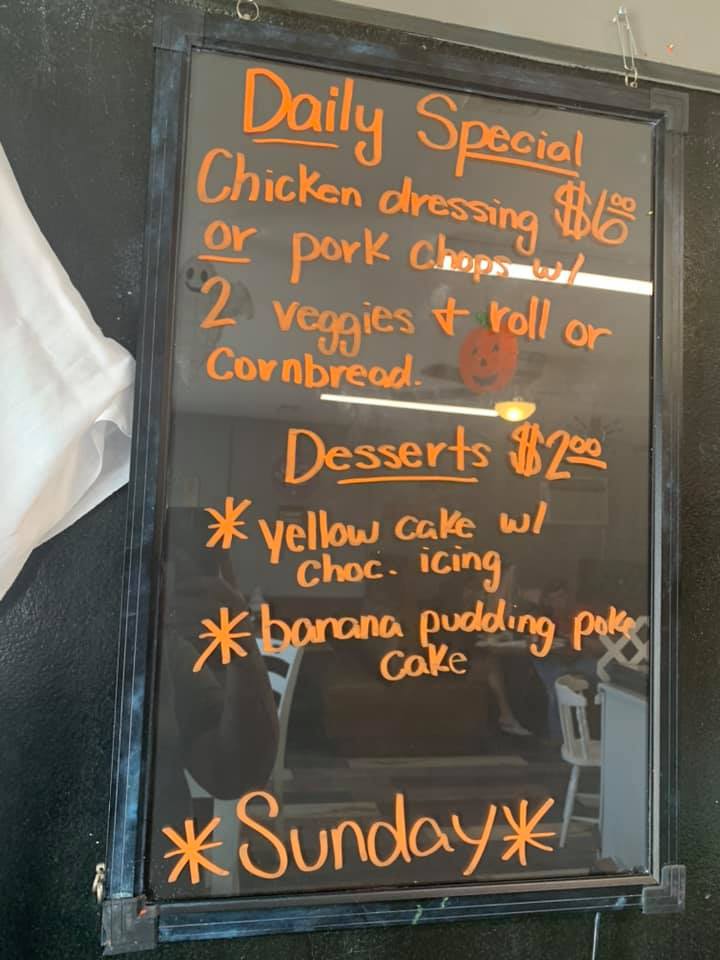 Daily Special
Chicken dressing $6.00
or pork chops w/
2 veggies + roll or
Cornbread.
Desserts $2.00
* yellow cake w/
choc. icing
* banana pudding poke
cake
*Sunday*